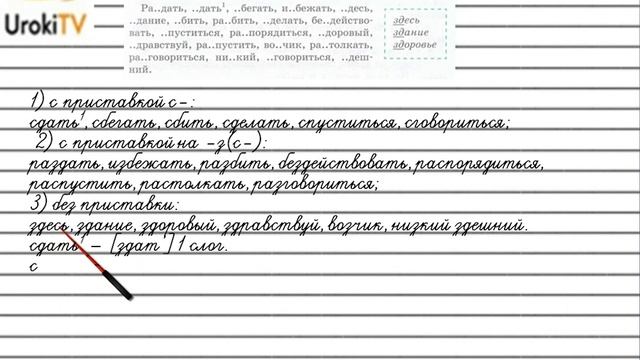 UrokiTV
Ра..дать, ..дать¹, ..бегать, и..бежать, ..десь,
..дание, ..бить, ра..бить, ..делать, бе..действо-
вать, ..пуститься, ра..порядиться, ..доровый,
..дравствуй, ра..пустить, во..чик, ра..толкать,
ра..говориться, ни..кий, ..говориться, ..деш-
ний.
здесь
здание
здоровье
1) с приставкой с-:
сдать¹, сбегать, сбить, сделать, спуститься, сговориться;
2) с приставкой на -з(с-):
раздать, избежать, разбить, бездействовать, распорядиться,
распустить, растолкать, разговориться;
3) без приставки:
здесь, здание, здоровый, здравствуй, возчик, низкий здешний.
сдать¹ - [здат'] 1 слог.
с